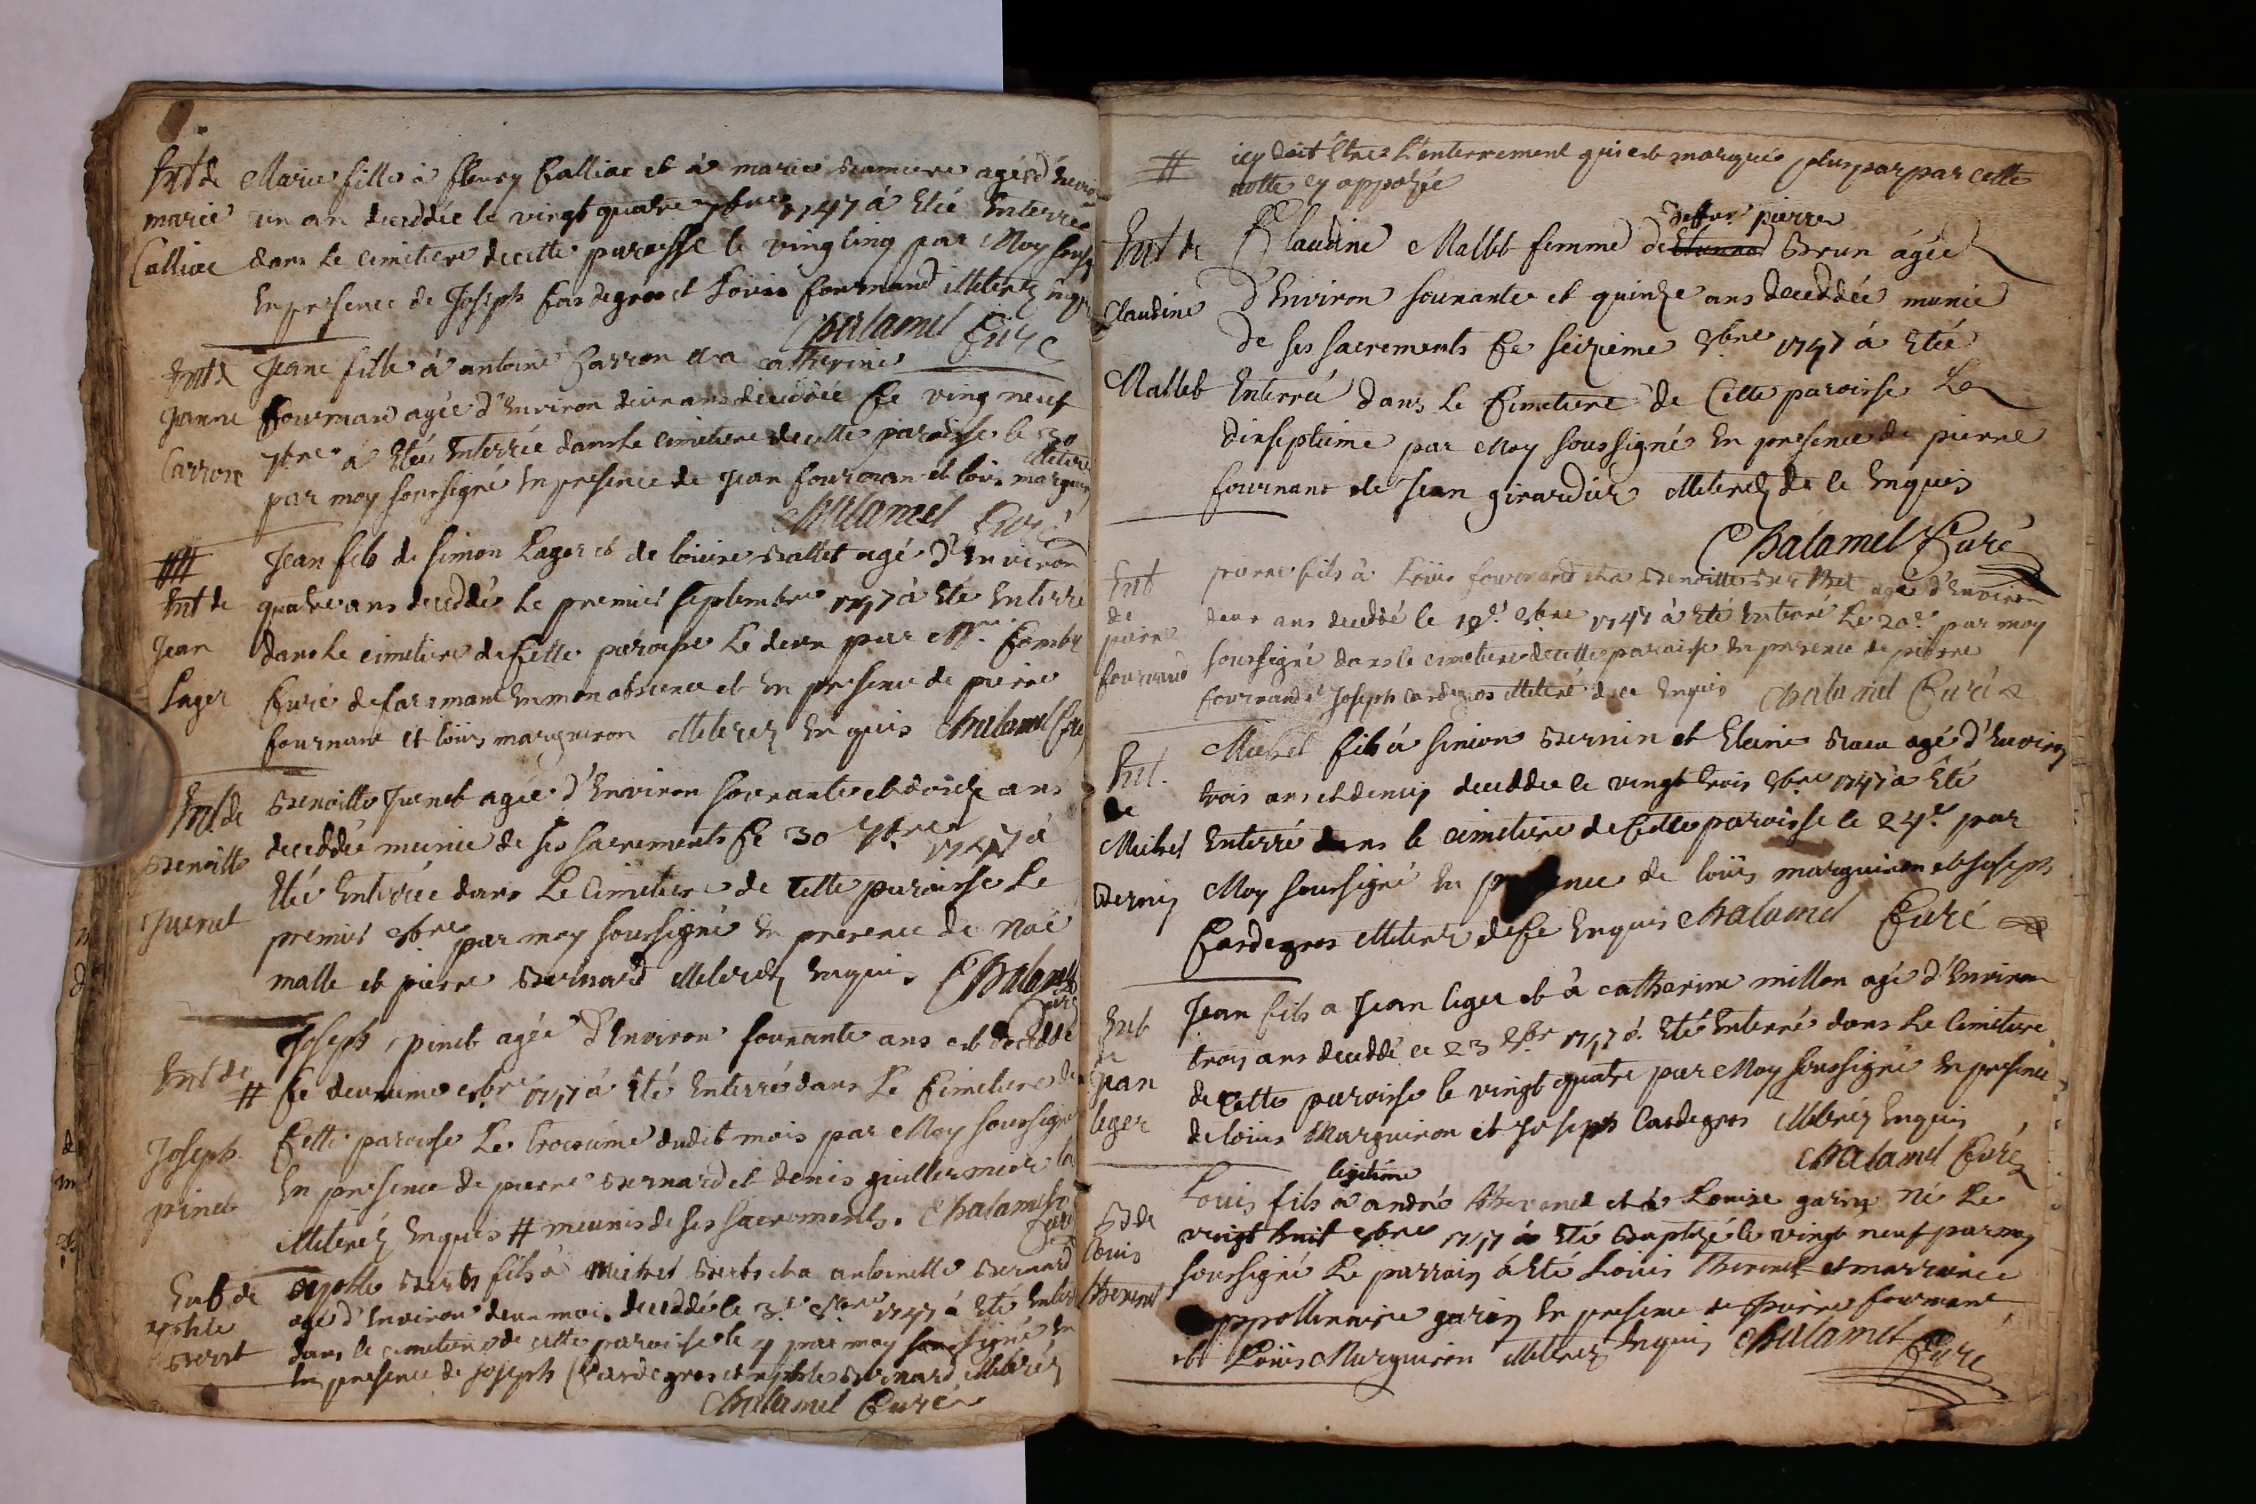 Ent de
marie
Calliac
Marie fille à fleury Calliac et à marie agée d'Environ
un an deceddée le vingt quatre 7bre 1747 à Eté Enterrée
dans le cimetiere de cette paroisse le vingt cinq par Moy soussigné
En presence de Joseph Cardegros et Loüis fournand illiterez enquis
Chalamel Curé
Ent d
Jeanne
Carron
Jeane fille à antoine Carron et a catherine
fournan agée d'Environ deux ans deceddée Ce ving neuf
7bre à Eté Enterrée dans le cimetiere de cette paroisse le 30
par moy soussigné En presence de Jean fournan et loüis marguiron illiterez
Chalamel Curé
##
Ent de
Jean
Lager
Jean fils de simon Lager et de loüise Ballet agé d'Environ
quatre ans deceddé Le premier septembre 1747 à Eté Enterré
dans Le cimetiere de Cette paroisse Le deux par Mr. Combe
Curé de En mon absence et En presence de pierre
fournant et loüis marguiron illiterez Enquis Chalamel Curé
Ent de
Benoitte
Juenet
Benoitte Juenet agée d'Environ soixante et douze ans
deceddée munie de ses sacrements Ce 30 7bre 1747 à
Eté Enterrée dans Le Cimetiere de Cette paroisse Le
premier 8bre par moy soussigné En presence de Noé
malle et pierre Bernard illiterez Enquis Chalamel
Curé
Ent de
#
Joseph
pinet
Joseph pinet agée d'Environ soixante ans est deceddé
Ce deuxieme 8bre 1747 à Eté Enterré dans Le Cimetiere de
Cette paroisse Le troisieme dudit mois par Moy soussigné
En presence de pierre Bernard et denis guillermier
illiterez Enquis # meunis de ses sacrements. Chalamel
Curé
Ent de
hypolite
Bert
hypolite Bert fils à Michel Bert et a antoinette Bernard
agé d'Environ deux mois deceddé le 3e 8bre 1747 à Eté Enterré
dans le cimetiere de cette paroisse le 4 par moy soussigné En
En presence de Joseph Cardegros et hypolite Bernard illiterez
Chalamel Curé
#
icy doit être L'enterrement qui est marqué plus par par cette
notte cy appozée
Ent de
Claudine
Mallet
deffun pierre
Claudine Mallet femme de Brun agée
d'Environ soixante et quinze ans deceddée munie
De ses sacrements Ce seizieme 8bre 1747 à Eté
Enterré dans Le Cimetiere de Cette paroisse Le
dixseptieme par Moy soussigné En presence de pierre
fournant et de Jean girardier illiterez de ce Enquis
Chalamel Curé
Ent
de
pierre
fournand
pierre fils à Loüis fournand et a Benoitte agée d'Environ
deux ans deceddé le 19e 8bre 1747 à Eté Enterré Le 20e par moy
soussigné dans le cimetiere de cette paroisse En presence de pierre
fournand et Joseph Cardegros illiteré de ce Enquis Chalamel Curé
Ent.
de
Michel
Bernin
Michel fils à simon Bernin et Blain agé d'Environ
trois ans et demy deceddé le vingt trois 8bre 1747 à Eté
Enterré dans le cimetiere de Cette paroisse le 24e par
Moy soussigné En presence de loüis marguiron et Joseph
Cardegros illiterez de Ce Enquis Chalamel Curé
Ent
de
jean
leger
Jean fils a Jean leger et à catherine millon agé d'Environ
trois ans deceddé ce 23 8bre 1747 à Eté Enterré dans Le Cimetiere
de Cette paroisse le vingt quatre par Moy soussigné En presence
de loüis Marguiron et Joseph Cardegros illiterez Enquis
Chalamel Curé
Bt de
Louis
thevenet
legitime
Louis fils à andré thevenet et à Louise garin né Le
vingt huit 8bre 1747 à Eté Baptizé le vingt neuf par moy
soussigné Le parrain à Eté Louis thevenet et marraine
appollinaire garin En presence de pierre fournant
et Loüis Marguiron illiterez Enquis Chalamel
Curé